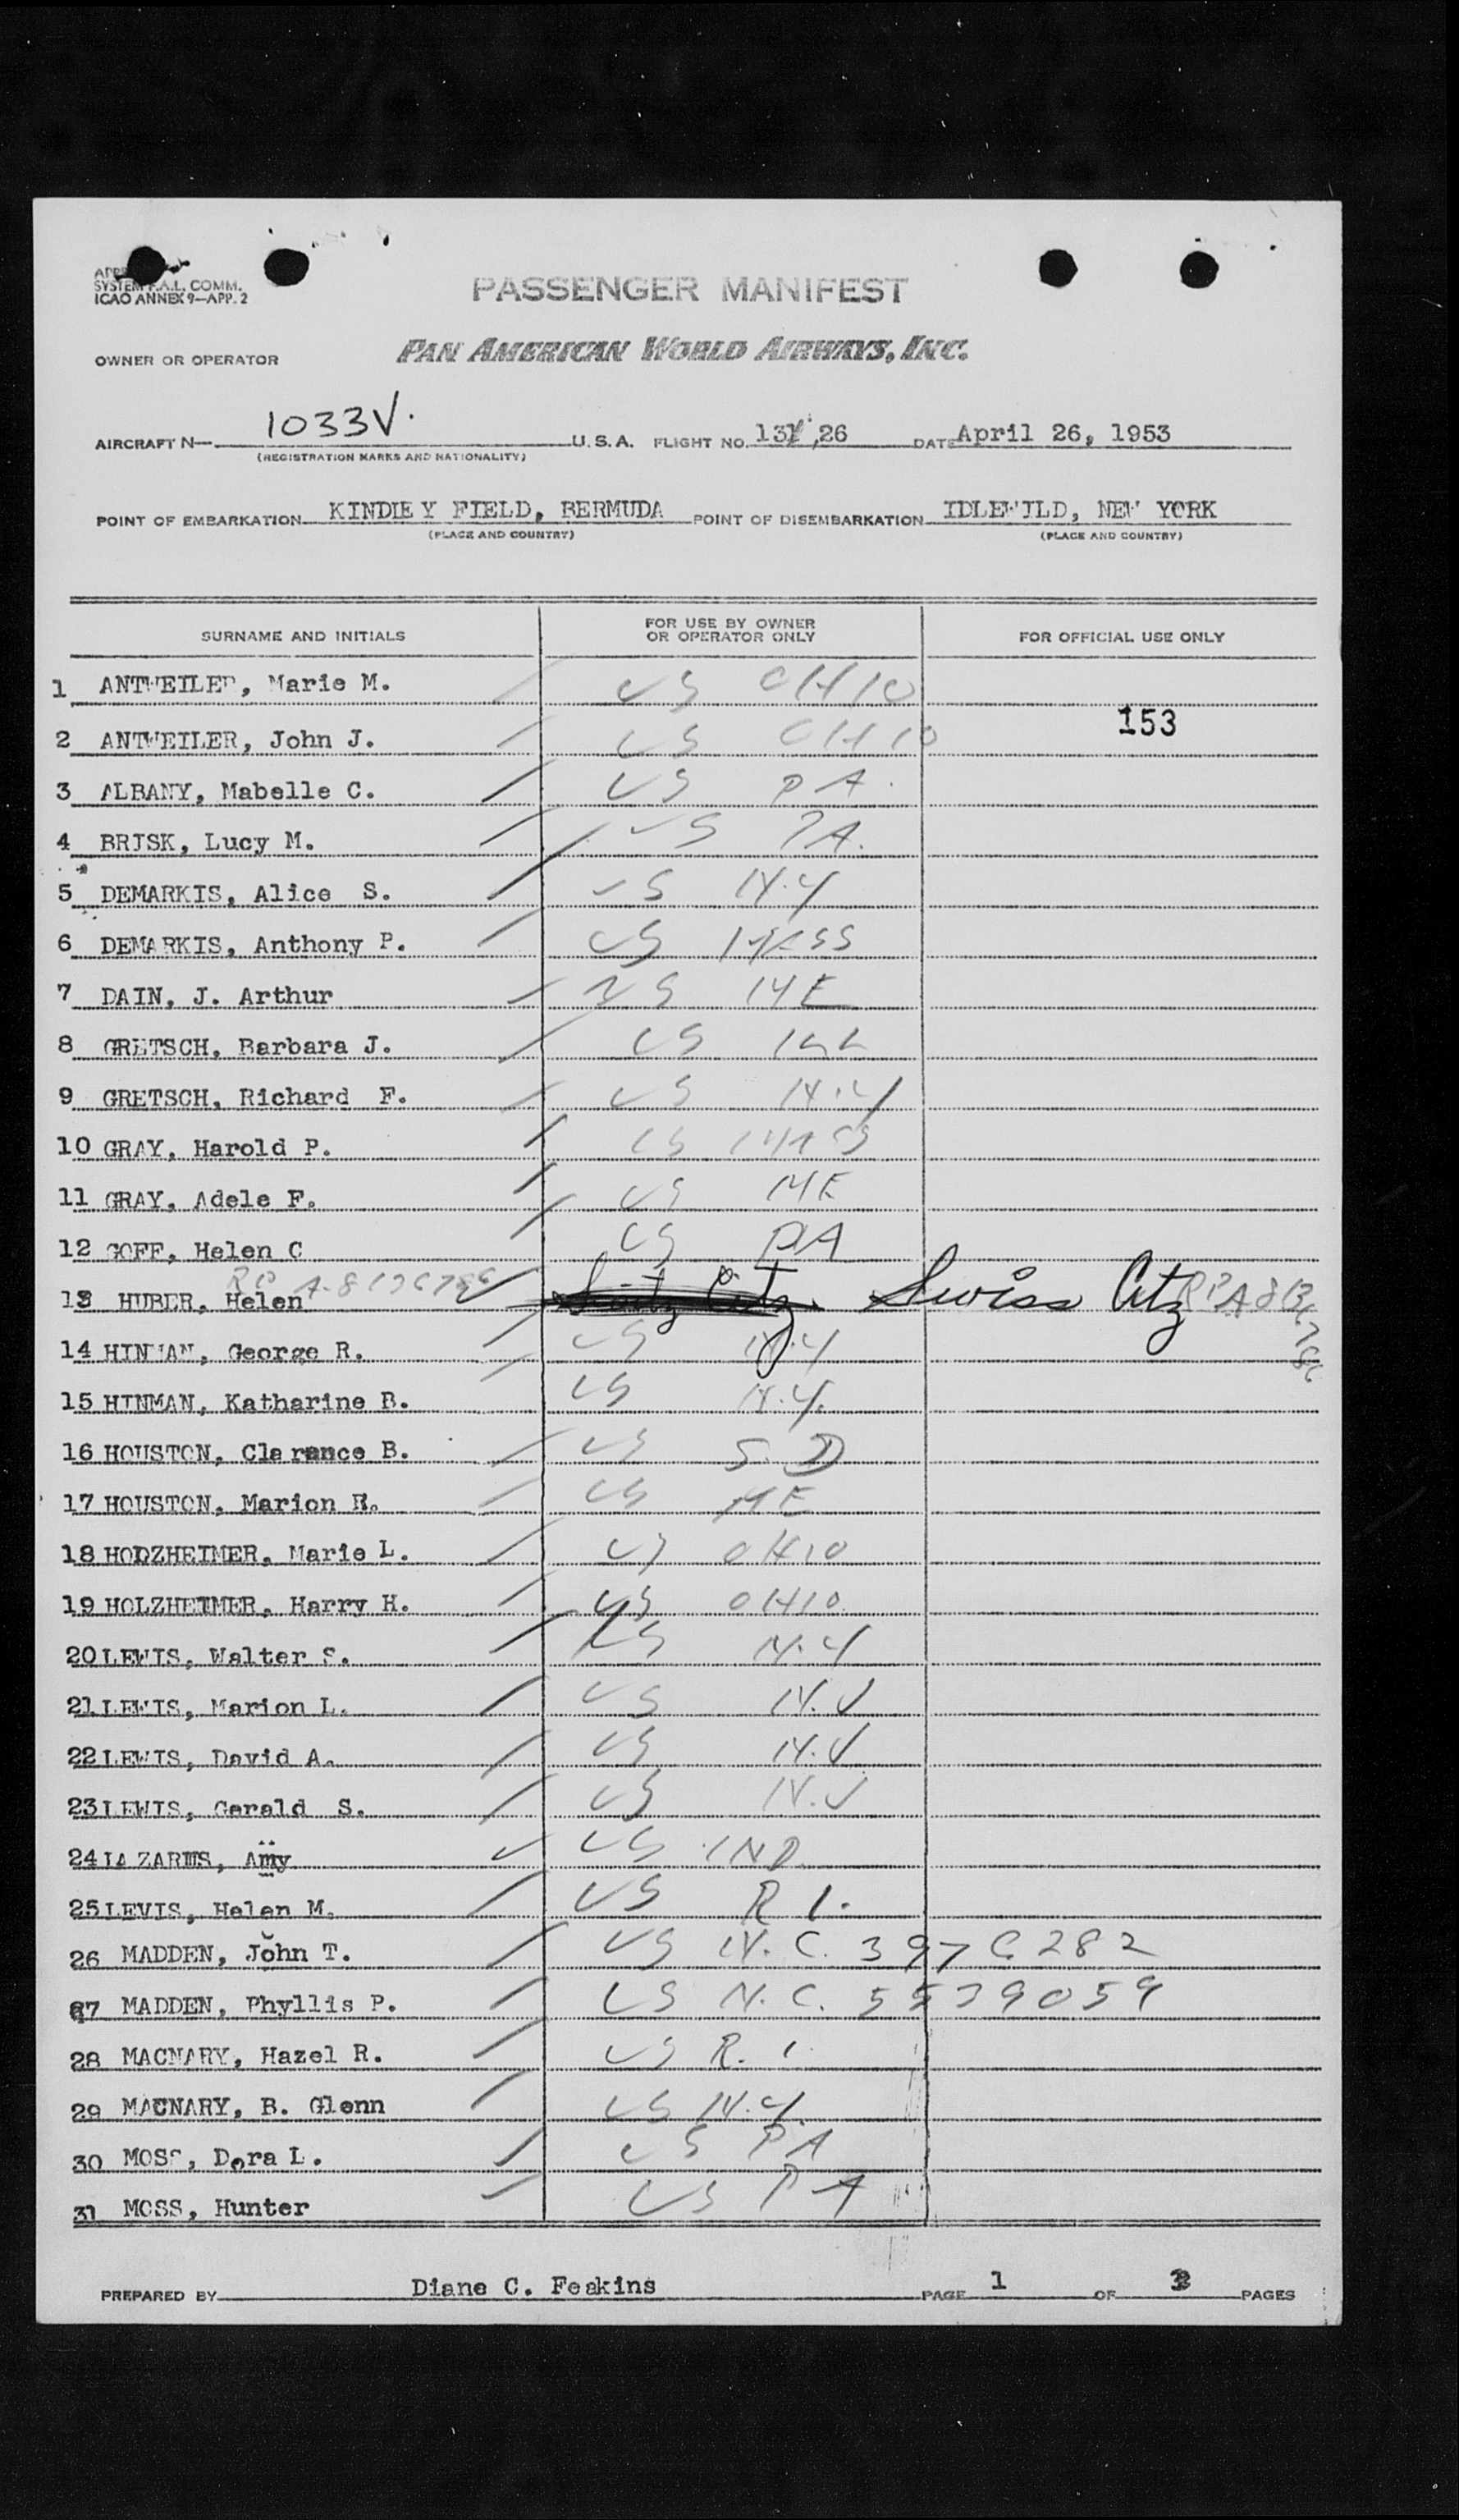 SYSTEM F.A.L. COMM.
ICAO ANNEX 9—APP. 2
PASSENGER MANIFEST
OWNER OR OPERATOR PAN AMERICAN WORLD AIRWAYS, INC.
AIRCRAFT N— 1033V. U.S.A. FLIGHT NO. ,26 DATE April 26, 1953
(REGISTRATION MARKS AND NATIONALITY)
POINT OF EMBARKATION KINDLEY FIELD, BERMUDA POINT OF DISEMBARKATION IDLEWILD, NEW YORK
(PLACE AND COUNTRY) (PLACE AND COUNTRY)
SURNAME AND INITIALS FOR USE BY OWNER OR OPERATOR ONLY FOR OFFICIAL USE ONLY
1 ANTWEILER, Marie M. US OHIO
153
2 ANTWEILER, John J. US OHIO
3 ALBANY, Mabelle C. US PA.
4 BRISK, Lucy M. US PA.
5 DEMARKIS, Alice S. US N.Y
6 DEMARKIS, Anthony P. US MASS
7 DAIN, J. Arthur US ME
8 GRETSCH, Barbara J. US
9 GRETSCH, Richard F. US N.Y
10 GRAY, Harold P. US MASS
11 GRAY, Adele F. US ME
12 GOFF, Helen C US PA
13 HUBER, Helen Swiss Citz
14 HINMAN, George R. US N.Y
15 HINMAN, Katharine B. US N.Y.
16 HOUSTON, Clarence B. US S.D
17 HOUSTON, Marion R. US ME
18 HODZHEIMER, Marie L. US OHIO
19 HOLZHEIMER, Harry H. US OHIO
20 LEWIS, Walter S. US N.Y
21 LEWIS, Marion L. US N.J
22 LEWIS, David A. US N.J
23 LEWIS, Gerald S. US N.J
24 LAZARUS, Amy US IND
25 LEVIS, Helen M. US R I.
26 MADDEN, John T. US N.C. 3976282
27 MADDEN, Phyllis P. US N.C. 5539059
28 MACNARY, Hazel R. US R. I
29 MACNARY, B. Glenn US N.Y.
30 MOSS, Dora L. US PA
31 MOSS, Hunter US PA
PREPARED BY Diane C. Feakins PAGE 1 OF PAGES